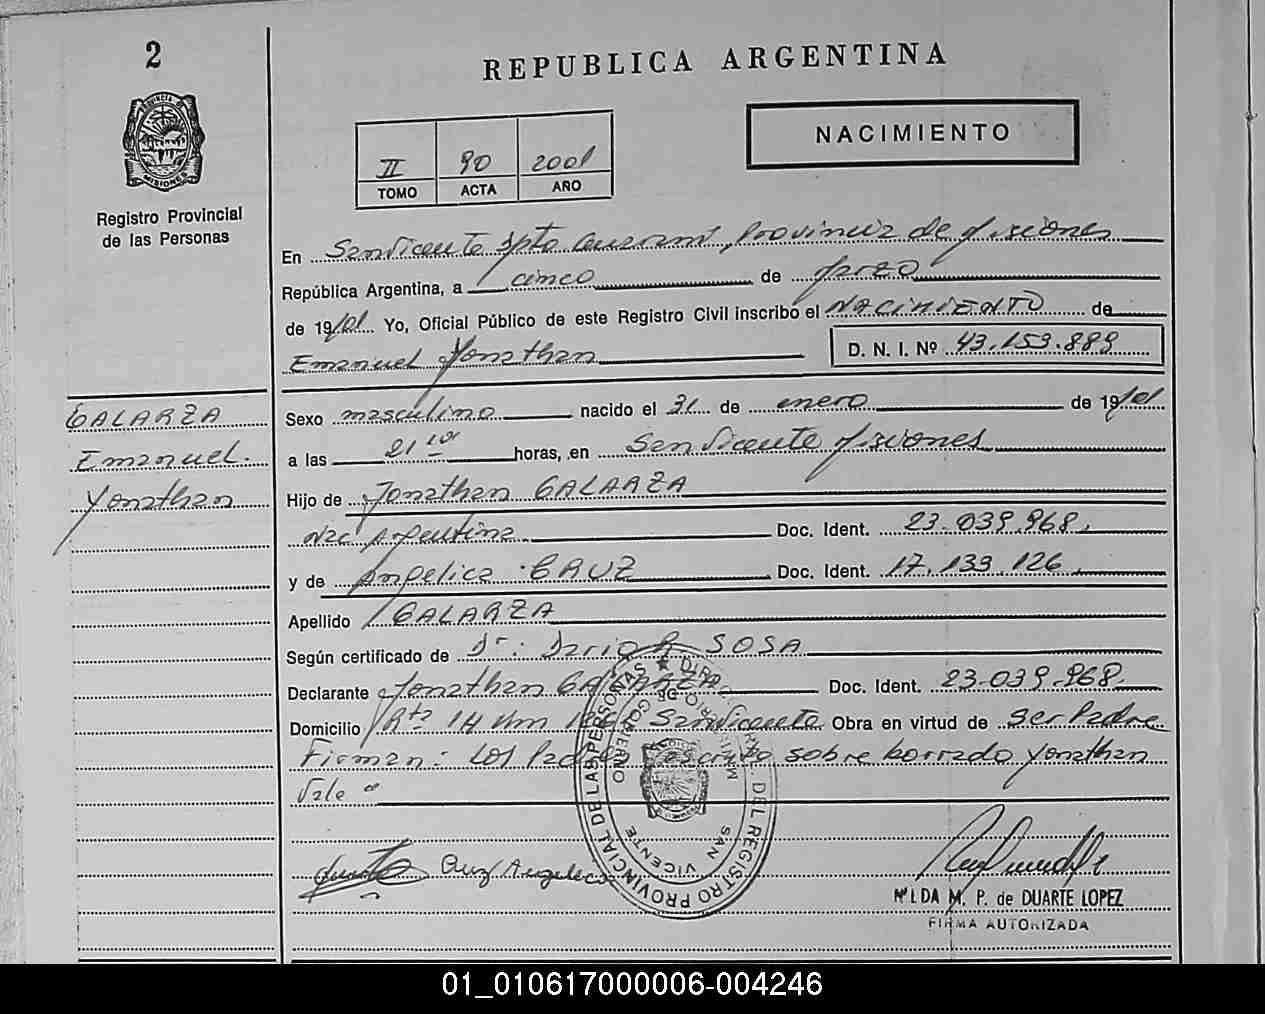 2
REPUBLICA ARGENTINA
NACIMIENTO
II 90 2001
TOMO ACTA AÑO
PROVINCIA DE
MISIONES
Registro Provincial
de las Personas
En San Vicente Dpto Guaraní, Provincia de Misiones
República Argentina, a cinco de Marzo
de 19/01 Yo, Oficial Público de este Registro Civil inscribo el NACIMIENTO de
Emanuel Yonathan D. N. I. Nº 43.153.889
GALARZA
Emanuel.
Yonathan
Sexo masculino nacido el 31 de enero de 19/01
a las 21 horas, en San Vicente Misiones
Hijo de Jonathan GALARZA
Nac Argentina Doc. Ident. 23.039.968.
y de Angelica CRUZ Doc. Ident. 17.133.126
Apellido GALARZA
Según certificado de Dr: Dario R SOSA
Declarante Jonathan GALARZA Doc. Ident. 23.039.968
Domicilio Rta 14 Km San Vicente Obra en virtud de ser Padre
Firman: Los Padres escrito sobre borrado Yonathan
Vale
Cruz Angelica
DEL REGISTRO PROVINCIAL DE LAS PERSONAS
SAN VICENTE
NILDA M. P. de DUARTE LOPEZ
FIRMA AUTORIZADA
01_010617000006-004246